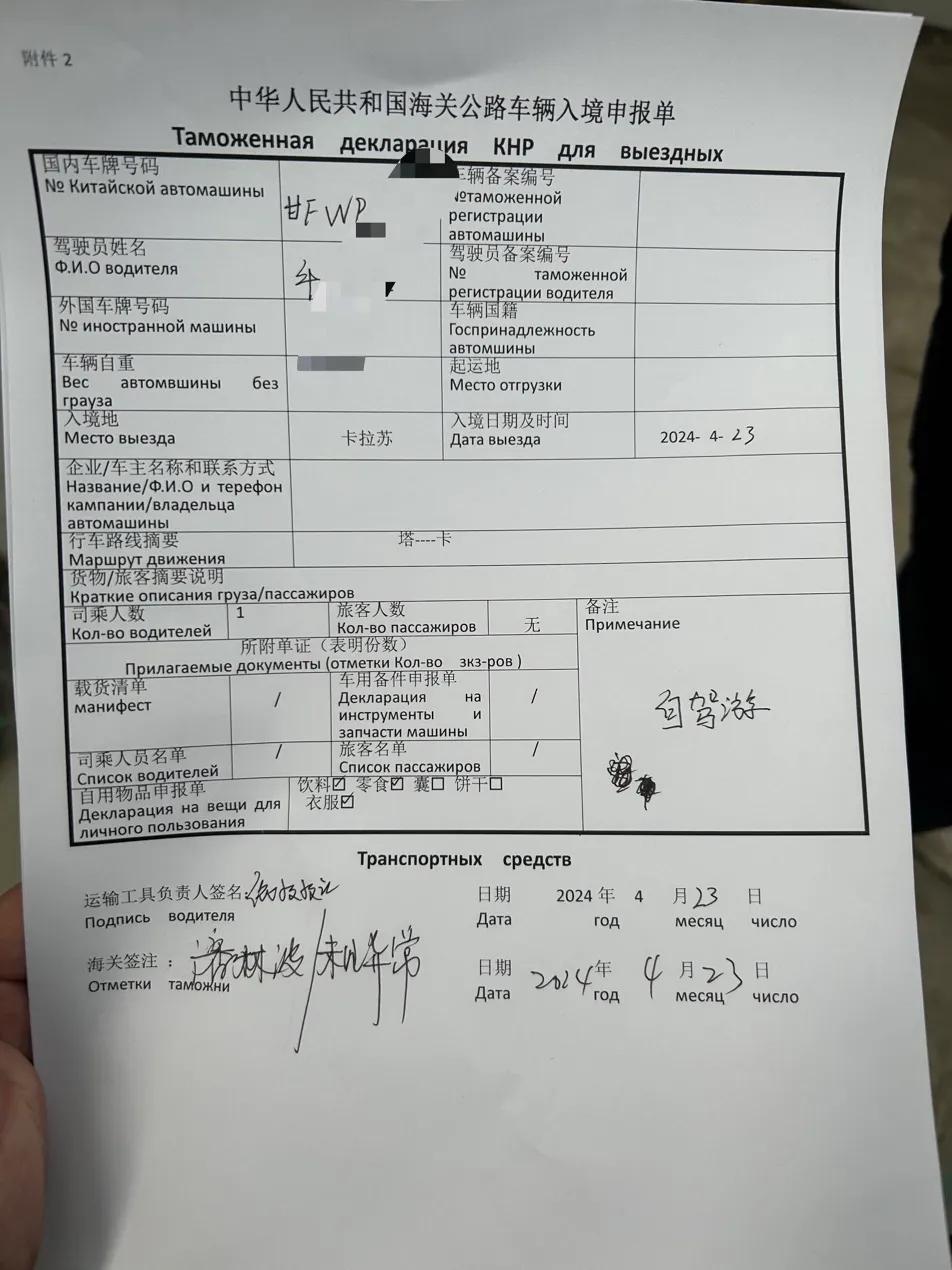 附件 2
中华人民共和国海关公路车辆入境申报单
Таможенная декларация КНР для выездных
国内车牌号码
№ Китайской автомашины
甘F WP
车辆备案编号
№таможенной
регистрации
автомашины
驾驶员姓名
Ф.И.О водителя
驾驶员备案编号
№ таможенной
регистрации водителя
外国车牌号码
№ иностранной машины
车辆国籍
Госпринадлежность
автомшины
车辆自重
Вес автомвшины без
грауза
起运地
Место отгрузки
入境地
Место выезда
卡拉苏
入境日期及时间
Дата выезда
2024- 4- 23
企业/车主名称和联系方式
Название/Ф.И.О и терефон
кампании/владельца
автомашины
行车路线摘要
Маршрут движения
塔----卡
货物/旅客摘要说明
Краткие описания груза/пассажиров
司乘人数
Кол-во водителей
1
旅客人数
Кол-во пассажиров
无
备注
Примечание
自驾游
所附单证（表明份数）
Прилагаемые документы (отметки Кол-во зкз-ров )
载货清单
манифест
/
车用备件申报单
Декларация на
инструменты и
запчасти машины
/
司乘人员名单
Список водителей
/
旅客名单
Список пассажиров
/
自用物品申报单
Декларация на вещи для
личного пользования
饮料☑ 零食☑ 囊☐ 饼干☐
衣服☑
Транспортных средств
运输工具负责人签名:
Подпись водителя
日期 2024 年 4 月 23 日
Дата год месяц число
海关签注：
Отметки таможни
未见异常
日期 2024 年 4 月 23 日
Дата год месяц число